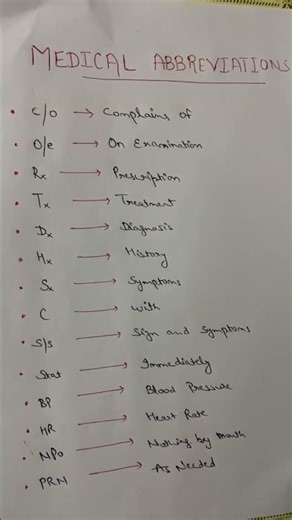 MEDICAL ABBREVIATIONS
• C/O → Complains of
• O/e → On Examination
• Rx → Prescription
• Tx → Treatment
• Dx → Diagnosis
• Hx → History
• Sx → Symptoms
• C → with
• S/S → Sign and Symptoms
• Stat → Immediately
• BP → Blood Pressure
• HR → Heart Rate
• NPO → Nothing by mouth
• PRN → As Needed